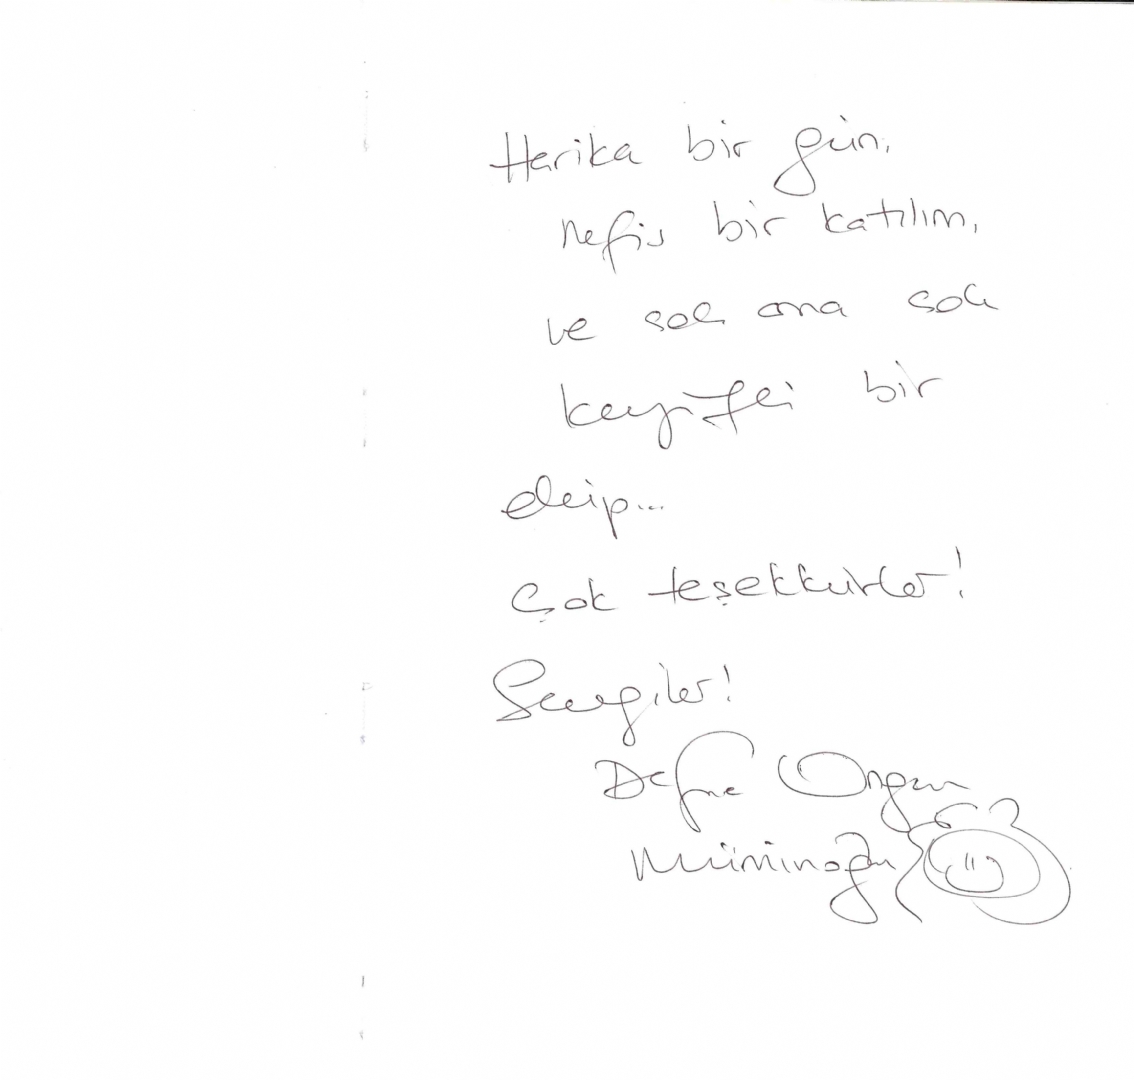 Harika bir gün,
nefis bir katılım,
ve çok ama çok
keyifli bir
ekip...
Çok teşekkürler!
Sevgiler!
Defne Ongun
Müminoğlu